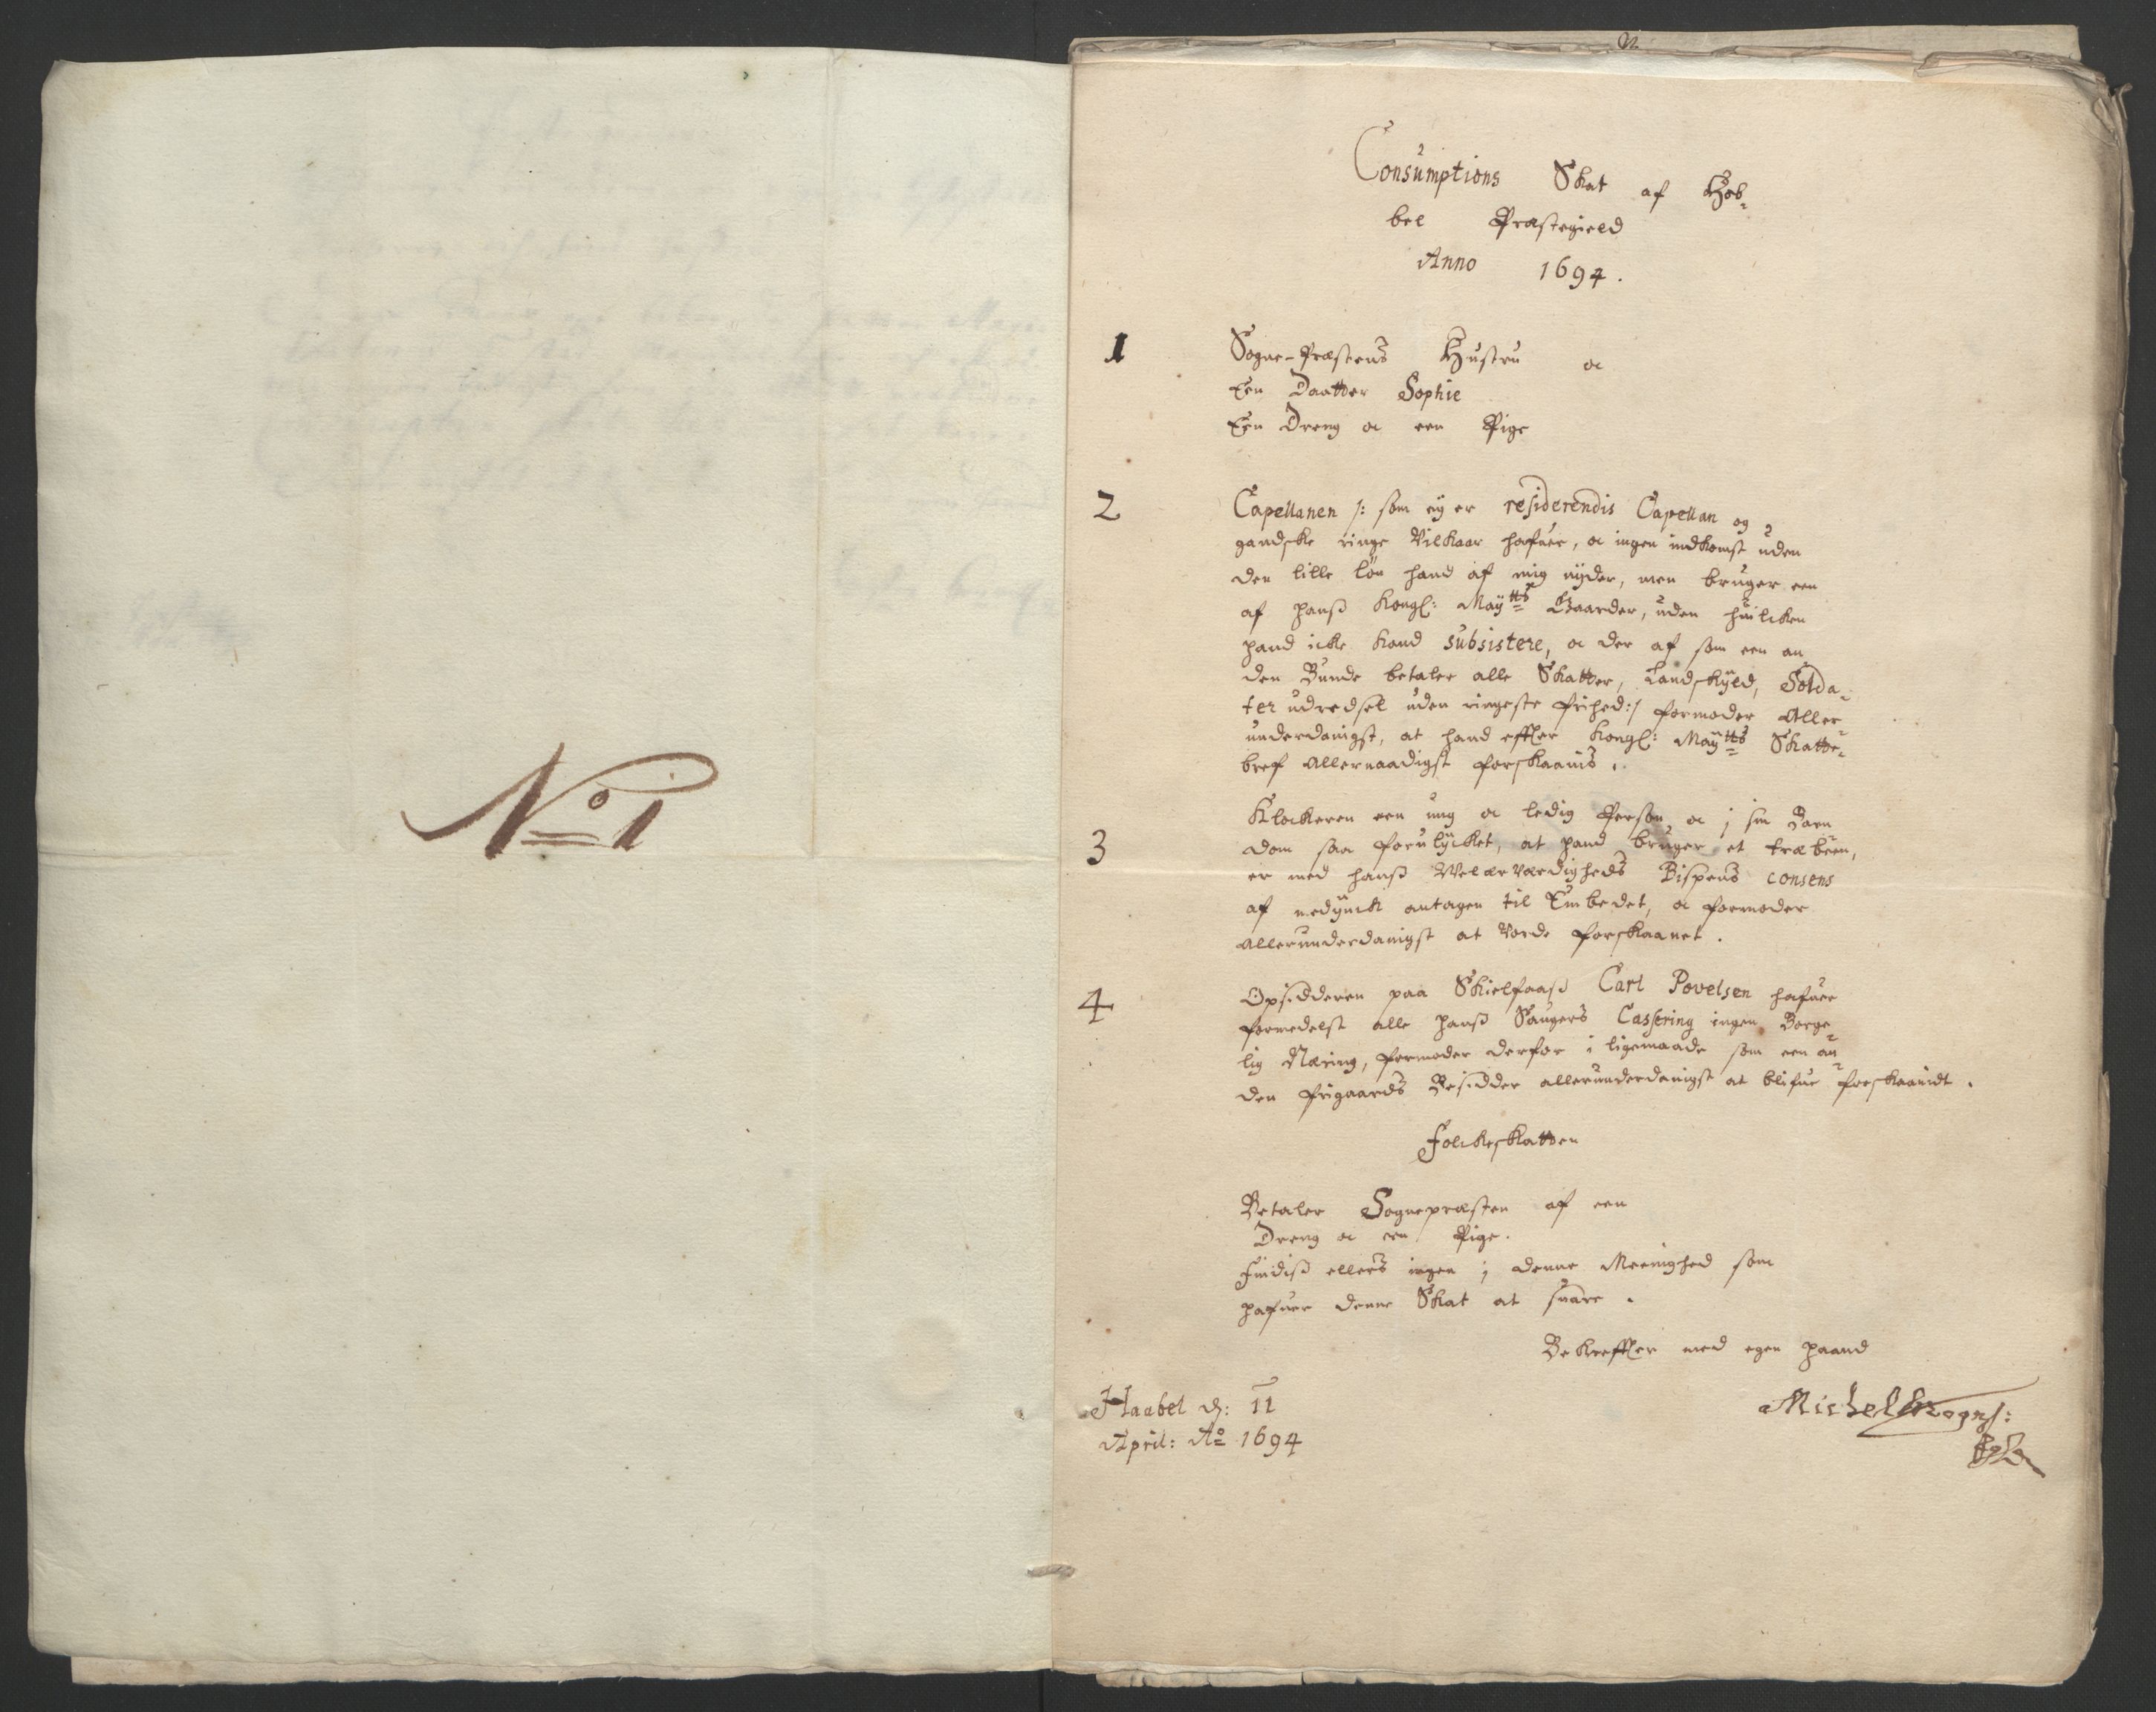 No 1
Consumptions Skat af Hob-
bel Præstegield
Anno 1694.
1
Sogne-Præstens Hustru oc
Een Daatter Sophie
Een Dreng oc een Pige
2
Capellanen /: som ey er residerendis Capellan og
gandske ringe Vilkaar hafuer, oc ingen indkomst uden
den lille løn hand af mig nyder, men bruger een
af hanß Kongl: Maytts Gaarder, uden huilcken
hand icke kand subsistere, oc der af som een an
den Bunde betaler alle Skatter, Landskyld, Solda-
ter udredsel uden ringeste frihed :/ formoder Aller-
underdanigst, at hand effter Kongl: Maytts Skatte-
bref Allernaadigst forskaanis.
3
Klockeren een ung oc ledig Person oc j sin Barn
dom saa forulycket, at hand bruger et træbeen,
er med hanß Welærværdigheds Bispens consens
af medynck antagen til Embedet, oc formoder
Allerunderdanigst at vorde forskaanet.
4
Opsidderen paa Skielfaaß Carl Povelsen hafuer
formedelst alle hanß Saugers Cassering ingen Borge-
lig Næring, formoder derfor i ligemaade som een an-
den frigaards Besidder allerunderdanigst at blifue forskaanidt.
Folckeskatten
Betaler Sognepræsten af een
Dreng oc een Pige.
Findiß ellers ingen j denne Meenighed som
hafuer denne Skat at suare.
Bekreffter med egen haand
Haabel d: 11
April: Ao 1694
Michel